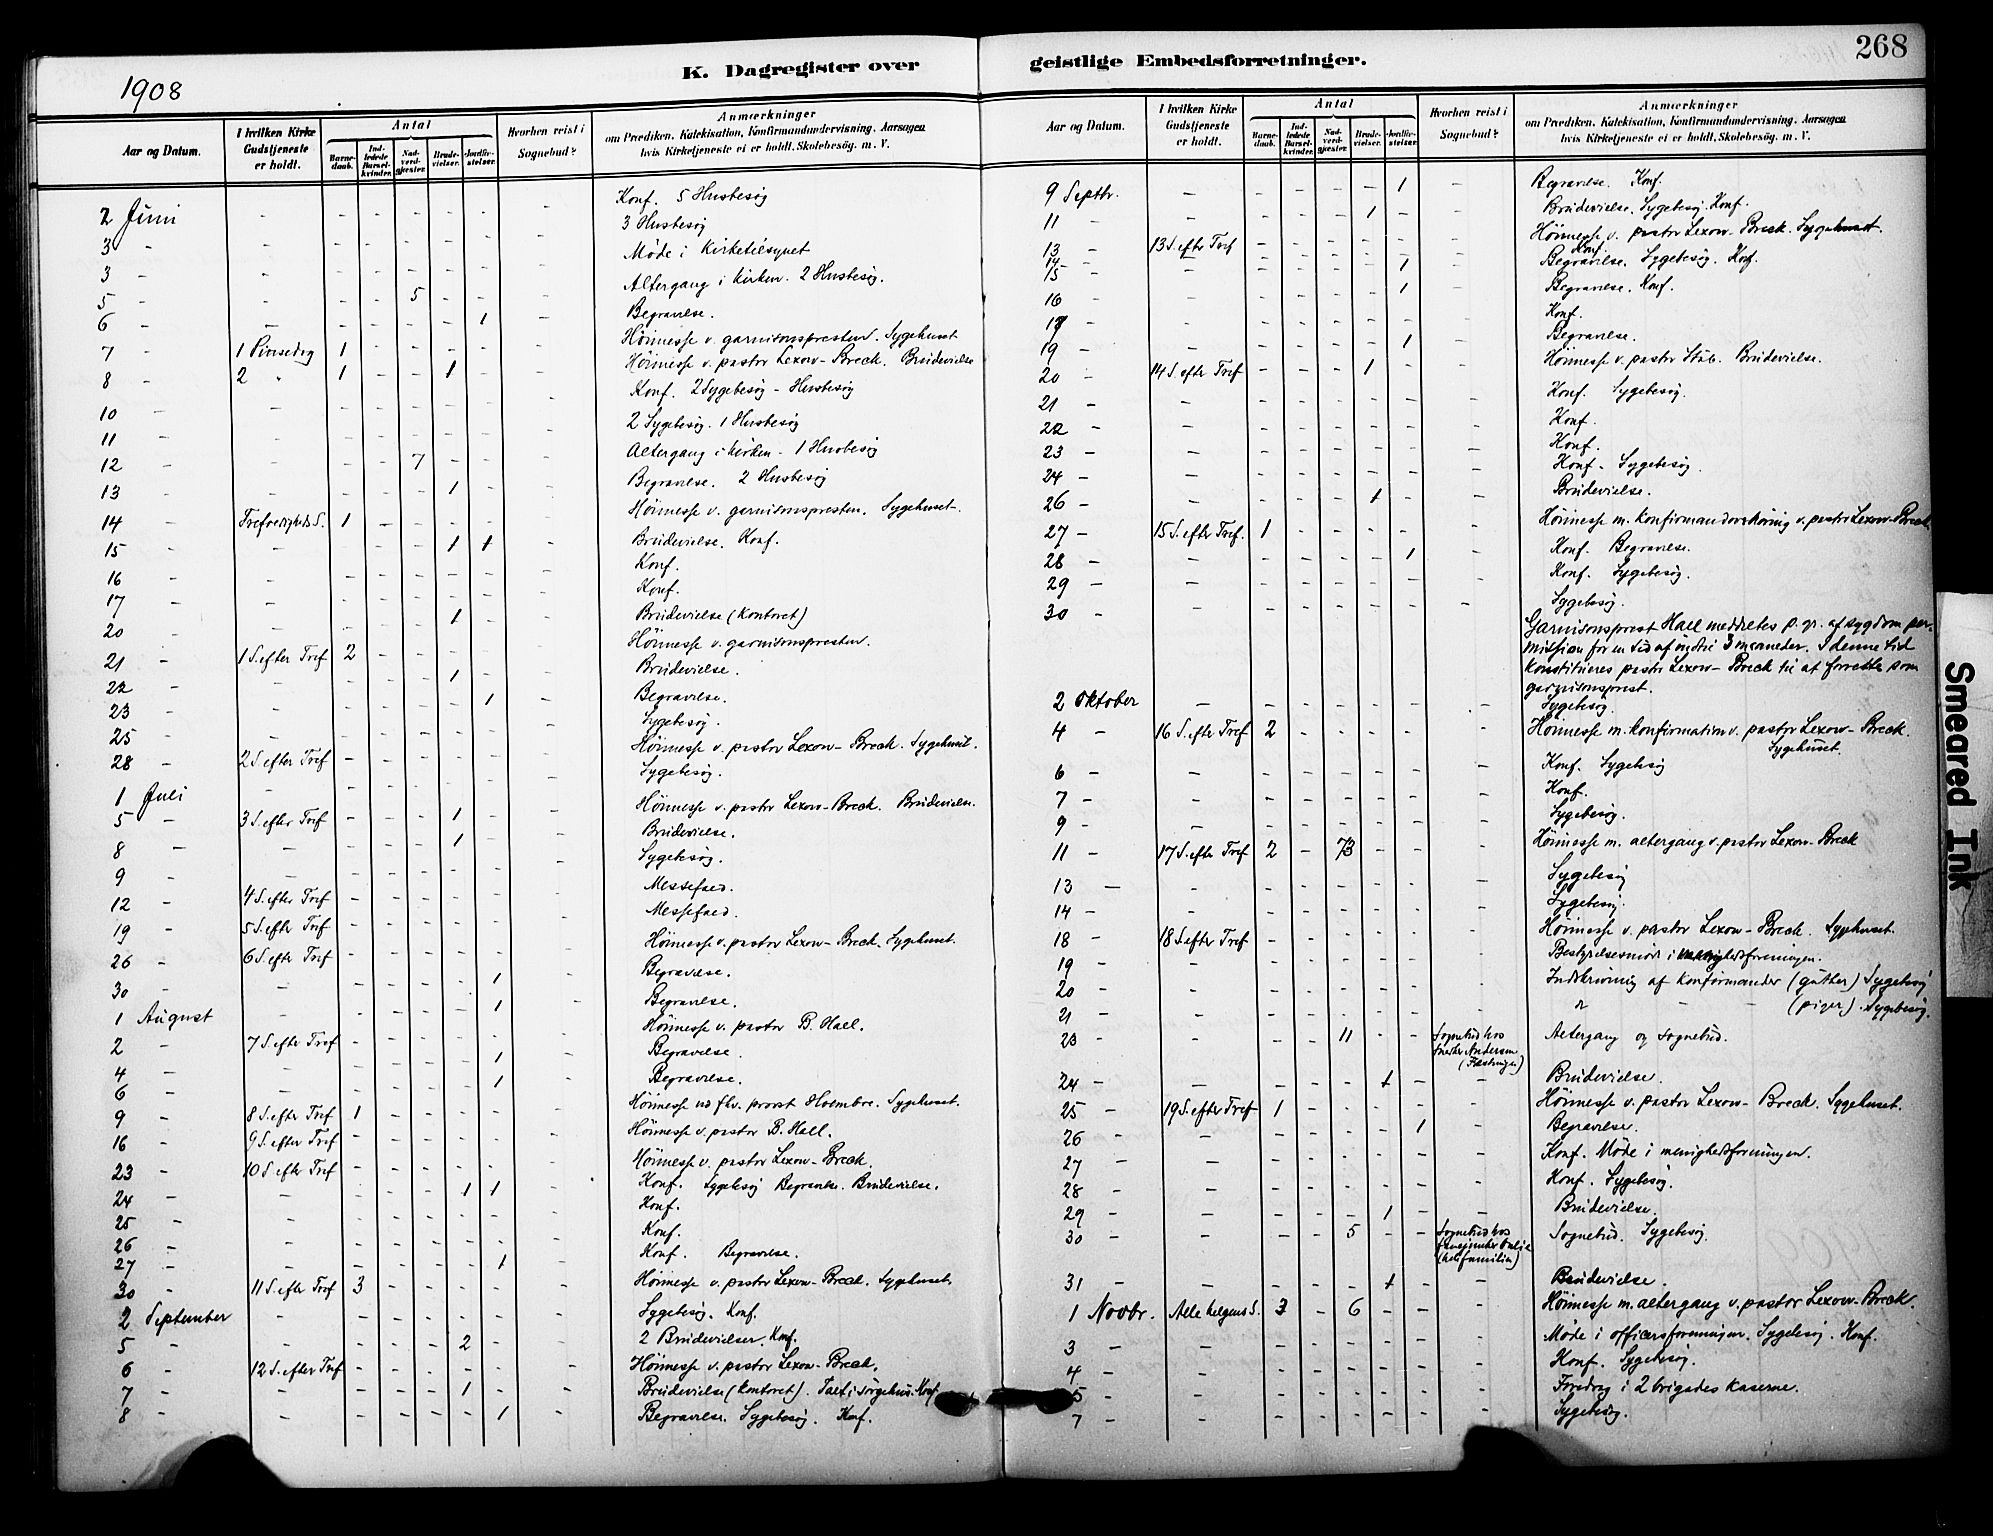 268
K. Dagregister over geistlige Embedsforretninger.
1908
Aar og Datum. I hvilken Kirke Gudstjeneste er holdt. Antal Barnedaab. Indledede Barselkvinder. Nadverdgjester. Brudevielser. Jordfæstelser. Hvorhen reist i Sognebud? Anmærkninger om Prædiken, Katekisation, Konfirmandundervisning, Aarsagen hvis Kirketjeneste ei er holdt, Skolebesøg. m. V.
2 Juni - - - - - - - Konf. 5 Husbesøg
3 - - - - - - - - 3 Husbesøg
3 - - - - - - - - Møde i Kirketilsynet
5 - - - - 5 - - - Altergang i kirken. 2 Husbesøg.
6 - - - - - - 1 - Begravelse.
7 - 1 Pinsedag 1 - - - - - Høimesse v. garnisonspresten. Sygehuset
8 - 2 " 1 - - 1 - Høimesse v. pastor Lexow-Breck. Brudevielse
10 - - - - - - - - Konf. 2 Sygebesøg - Husbesøg
11 - - - - - - - - 2 Sygebesøg. 1 Husbesøg
12 - - - - 7 - - - Altergang i kirken - 1 Husbesøg
13 - - - - - 1 - - Begravelse. 2 Husbesøg
14 - Trefoldigheds S. 1 - - - - - Høimesse v. garnisonspresten. Sygehuset.
15 - - - - - 1 1 - Brudevielse. Konf.
16 - - - - - - - - Konf.
17 - - - - - - - - Konf.
20 - - - - - 1 - - Brudevielse (kontoret)
21 - 1 S. efter Tref 2 - - - - - Høimesse v. garnisonspresten.
22 - - - - - 1 - - Brudevielse.
23 - - - - - - 1 - Begravelse.
25 - - - - - - - - Sygebesøg.
28 - 2 S. efter Tref - - - - - - Høimesse v. pastor Lexow-Breck. Sygehuset.
1 Juli - - - - - - - Sygebesøg.
5 - 3 S. efter Tref - - - 1 - - Høimesse v. pastor Lexow-Breck. Brudevielse.
8 - - - - - 1 - - Brudevielse.
9 - - - - - - - - Sygebesøg.
12 - 4 S. efter Tref - - - - - - Messefald.
19 - 5 S. efter Tref - - - - - - Messefald.
26 - 6 S. efter Tref - - - - - - Høimesse v. pastor Lexow-Breck. Sygehuset.
30 - - - - - - 1 - Begravelse.
1 August - - - - - 1 - Begravelse.
2 - 7 S. efter Tref - - - - - - Høimesse v. pastor B. Hall.
4 - - - - - - 1 - Begravelse.
6 - - - - - - 1 - Begravelse.
9 - 8 S. efter Tref 1 - - - - - Høimesse ved fhv. prost Holmboe. Sygehuset.
16 - 9 S. efter Tref - - - - - - Høimesse v. pastor B. Hall.
23 - 10 S. efter Tref - - - - - - Høimesse v. pastor Lexow-Breck.
24 - - - - - 1 1 - Konf. Sygebesøg Begravelse. Brudevielse.
25 - - - - - - - - Konf.
26 - - - - - - - - Konf.
27 - - - - - - 1 - Konf. Begravelse.
30 - 11 S. efter Tref 3 - - - - - Høimesse v. pastor Lexow-Breck. Sygehuset.
2 September - - - - - - - Sygebesøg. Konf.
5 - - - - - 2 - - 2 Brudevielser. Konf.
6 - 12 S. efter Tref - - - - - - Høimesse v. pastor Lexow-Breck.
7 - - - - - 1 - - Brudevielse (kontoret). Tale i sørgehus. Konf
8 - - - - - - 1 - Begravelse. Sygebesøg. Konf.
Aar og Datum. I hvilken Kirke Gudstjeneste er holdt. Antal Barnedaab. Indledede Barselkvinder. Nadverdgjester. Brudevielser. Jordfæstelser. Hvorhen reist i Sognebud? Anmærkninger om Prædiken, Katekisation, Konfirmandundervisning, Aarsagen hvis Kirketjeneste ei er holdt, Skolebesøg. m. V.
9 Septbr. - - - - - 1 - Begravelse. Konf.
11 - - - - 1 - - Brudevielse. Sygebesøg. Konf.
13 - 13 S. efter Tref - - - - - - Høimesse v. pastor Lexow-Breck. Sygehuset.
14 - Konf.
15 - - - - - - 1 - Begravelse. Sygebesøg. Konf.
16 - - - - - - 1 - Begravelse. Konf.
17 - - - - - - - - Konf.
19 - - - - - - 1 - Begravelse.
20 - 14 S. efter Tref - - - 1 - - Høimesse v. pastor Stub. Brudevielse.
21 - - - - - - - - Konf. Sygebesøg.
22 - - - - - - - - Konf.
23 - - - - - - - - Konf.
24 - - - - - - - - Konf. Sygebesøg.
26 - - - - - 1 - - Brudevielse.
27 - 15 S. efter Tref. 1 - - - - - Høimesse m. konfirmandoverhøring v. pastor Lexow-Breck.
28 - - - - - - 1 - Konf. Begravelse.
29 - - - - - - - - Konf. Sygebesøg.
30 - - - - - - - - Sygebesøg.
Garnisonsprest Hall meddeltes p. gr. af sygdom per-
mission for en tid af indtil 3 maaneder. I denne tid
konstitueres pastor Lexow-Breck til at forrette som
garnisonsprest.
2 Oktober - - - - - - - Sygebesøg.
4 - 16 S. efter Tref 2 - - - - - Høimesse m. konfirmation v. pastor Lexow-Breck.
Sygehuset.
6 - - - - - - - - Konf. Sygebesøg
7 - - - - - - - - Konf.
9 - - - - - - - - Sygebesøg.
11 - 17 S. efter Tref 2 - 73 - - - Høimesse m. altergang v. pastor Lexow-Breck
13 - - - - - - - - Sygebesøg
14 - - - - - - - - Sygebesøg.
18 - 18 S. efter Tref - - - - - - Høimesse v. pastor Lexow-Breck. Sygehuset.
19 - - - - - - - - Bestyrelsesmøde i menighedsforeningen.
20 - - - - - - - - Indskrivning af konfirmander (gutter) Sygebesøg
21 - - - - - - - - " - - (piger). Sygebesøg.
23 - - - - 11 - - Sognebud hos Andersen (Fæstningen) Altergang og sognebud.
24 - - - - - 1 - - Brudevielse.
25 - 19 S. efter Tref 1 - - - - - Høimesse v. pastor Lexow-Breck. Sygehuset.
26 - - - - - - 1 - Begravelse.
27 - - - - - - - - Konf. Møde i menighedsforeningen.
28 - - - - - - - - Konf. Sygebesøg.
29 - - - - - 1 - - Brudevielse.
30 - - - - 5 - - Sognebud hos Sognebud. Sygebesøg.
31 - - - - - 1 - - Brudevielse.
1 Novbr. Alle helgens S. 3 - 6 - - - Høimesse m. altergang v. pastor Lexow-Breck.
3 - - - - - - - - Møde i officersforeningen. Sygebesøg. Konf.
4 - - - - - - - - Konf. Sygebesøg.
5 - - - - - - - - Foredrag i 2 brigades kaserne.
7 - - - - - - - - Sygebesøg.
Smeared Ink